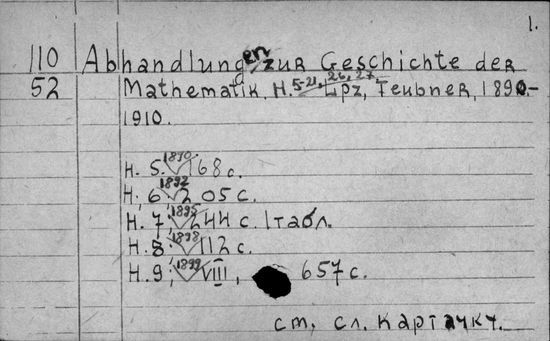 1.
110 Abhandlungen zur Geschichte der
52 Mathematik. H. 5-21, 26, 27. Lpz, Teubner, 1890-
1910.
H. 5. 1890. 168 с.
H. 6. 1892 205 с.
H. 7; 1895 244 с. 1 табл.
H. 8; 1898 112 с.
H. 9; 1899 VIII, 657 с.
см. сл. карточку.